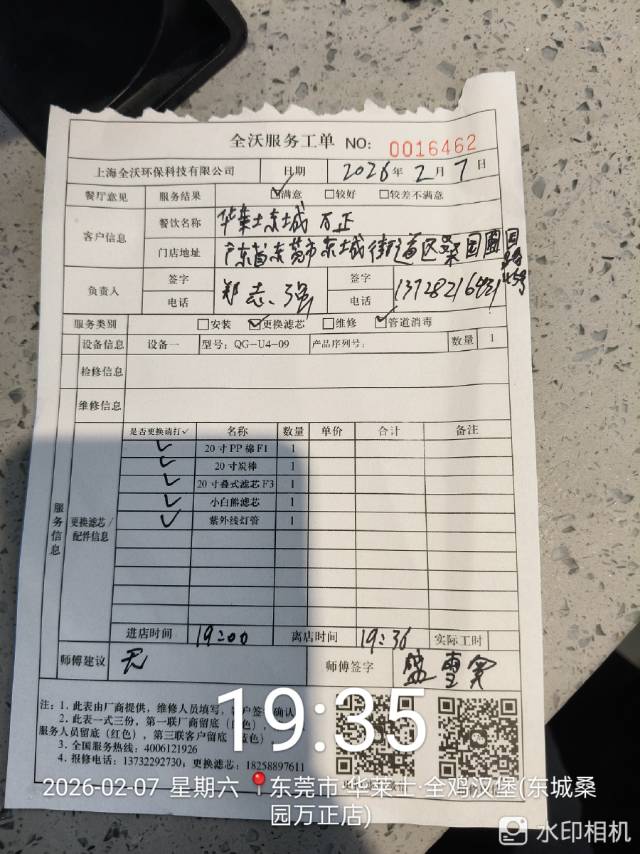 全沃服务工单 NO: 0016462
上海全沃环保科技有限公司 日期 2026年2月7日
餐厅意见 服务结果 ☑满意 □较好 □较差不满意
客户信息 餐饮名称 华莱士东城万正
门店地址 广东省东莞市东城街道区桑园
负责人 签字 郑志强 签字
电话 电话 13728216431
服务类别 □安装 ☑更换滤芯 □维修 ☑管道消毒
设备信息 设备一 型号: QG-U4-09 产品序列号: 数量 1
检修信息
维修信息
服务信息
更换滤芯/配件信息
是否更换请打✓ 名称 数量 单价 合计 备注
✓ 20寸PP棉F1 1
✓ 20寸炭棒 1
✓ 20寸叠式滤芯F3 1
✓ 小白熊滤芯 1
✓ 紫外线灯管 1
进店时间 19:00 离店时间 19:36 实际工时
师傅建议 无 师傅签字
注: 1. 此表由厂商提供, 维修人员填写, 客户签字确认
2. 此表一式三份, 第一联厂商留底(白色),
服务人员留底(红色), 第三联客户留底(蓝色)
3. 全国服务热线: 4006121926
4. 报修电话: 13732292730; 18258897611
19:35
2026-02-07 星期六 东莞市·华莱士·全鸡汉堡(东城桑
园万正店)
水印相机